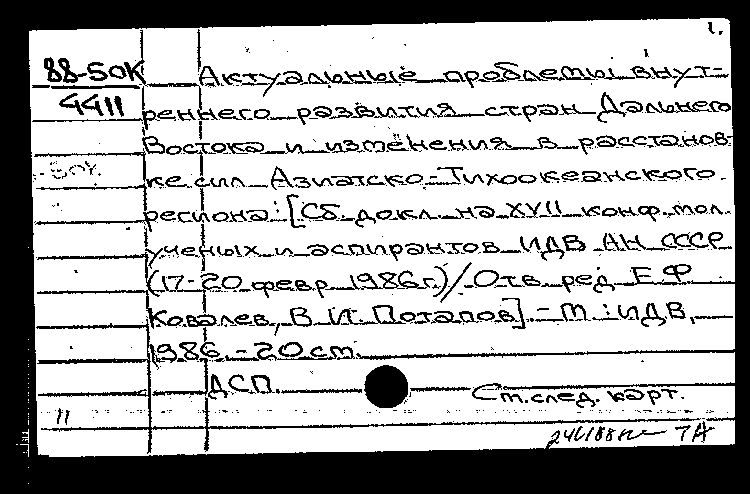 1.
88-5OK Актуальные проблемы внут-
4411 реннего развития стран Дальнего
Востока и изменения в расстанов-
ке сил Азиатско-Тихоокеанского
региона: [Сб. докл. на XVII конф. мол.
ученых и аспирантов ИДВ АН СССР
(17-20 февр. 1986г.)/Отв. ред. Е.Ф.
Ковалев, В.И. Потапов]. - М.: ИДВ,
1986. - 20 см.
ДСП.
См. след. карт.
11
7А